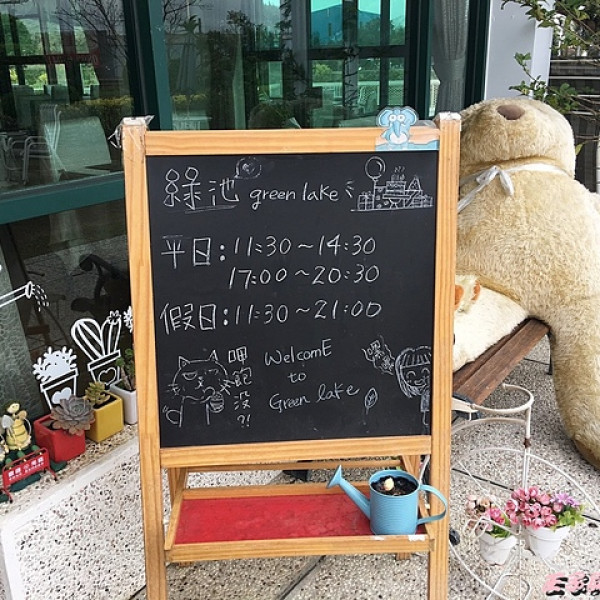 綠池 green lake
平日:11:30~14:30
17:00~20:30
假日:11:30~21:00
呷飽沒?!
WelcomE
to
Green lake